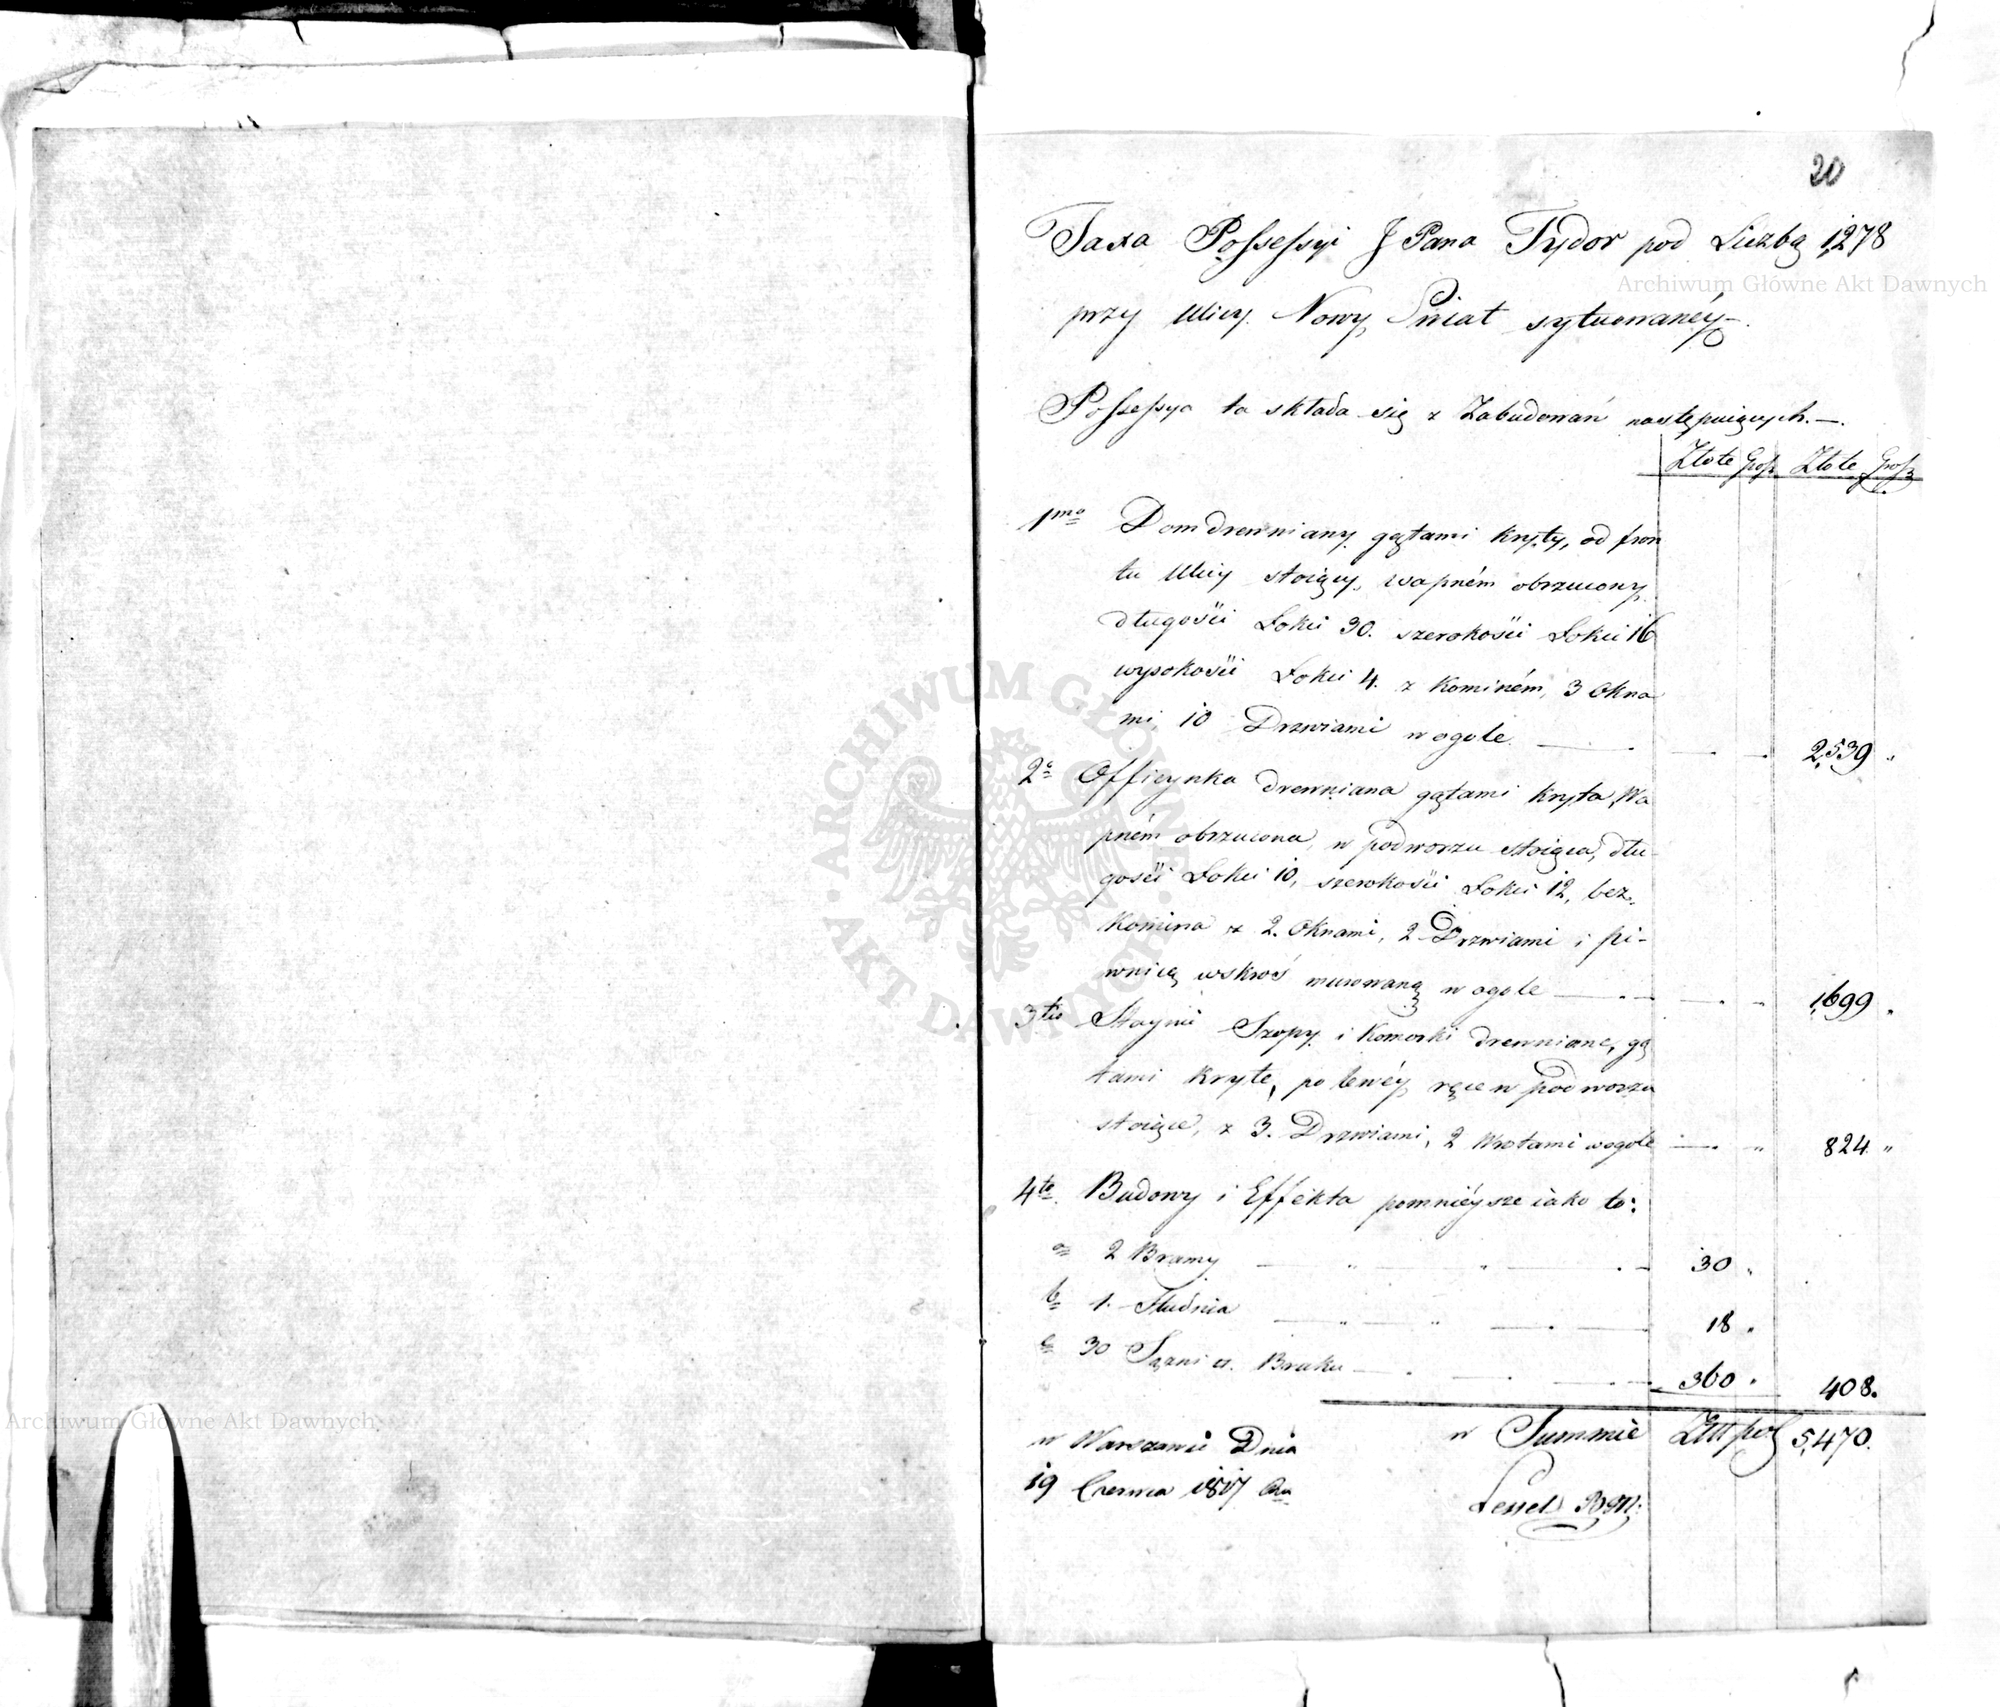 20
Taxa Possessyi J Pana Tydor pod Liczbą 1,278
przy Ulicy Nowy Swiat sytuowanéy.
Possessya ta składa się z Zabudowań następuiących. —
Złote Grosz Złote Grosz
1mo Dom drewniany gątami kryty, od fron
tu Ulicy stoiący, wapném obrzucony
długości Łokci 30. szerokości Łokci 16
wysokości Łokci 4. z Kominém, 3 Okna
mi, 10 Drzwiami w ogole 2,539 „
2o Officynka drewniana gątami kryta, Wa
pném obrzucona, w podworzu stoiąca, dłu-
gości Łokci 10, szerokości Łokci 12, bez
Komina z 2. Oknami, 2 Drzwiami i pi-
wnicą wskroś murowaną w ogole 1,699 „
3tio Stayni Szopy i Komorki drewniane, gą
tami kryte, po lewéy ręce w podworzu
stoiące, z 3. Drzwiami, 2 Wrotami wogole 824 „
4to Budowy i Effekta pomniéysze iako to:
a 2 Bramy 30 „
b 1. Studnia 18 „
c 30 Sążni □. Bruku 360 „ 408.
w Summie Złł pol 5,470.
w Warszawie Dnia
19 Czerwca 1817 Ru
Lessel BGM.
Archiwum Główne Akt Dawnych
ARCHIWUM GŁÓWNE · AKT DAWNYCH ·
Archiwum Główne Akt Dawnych